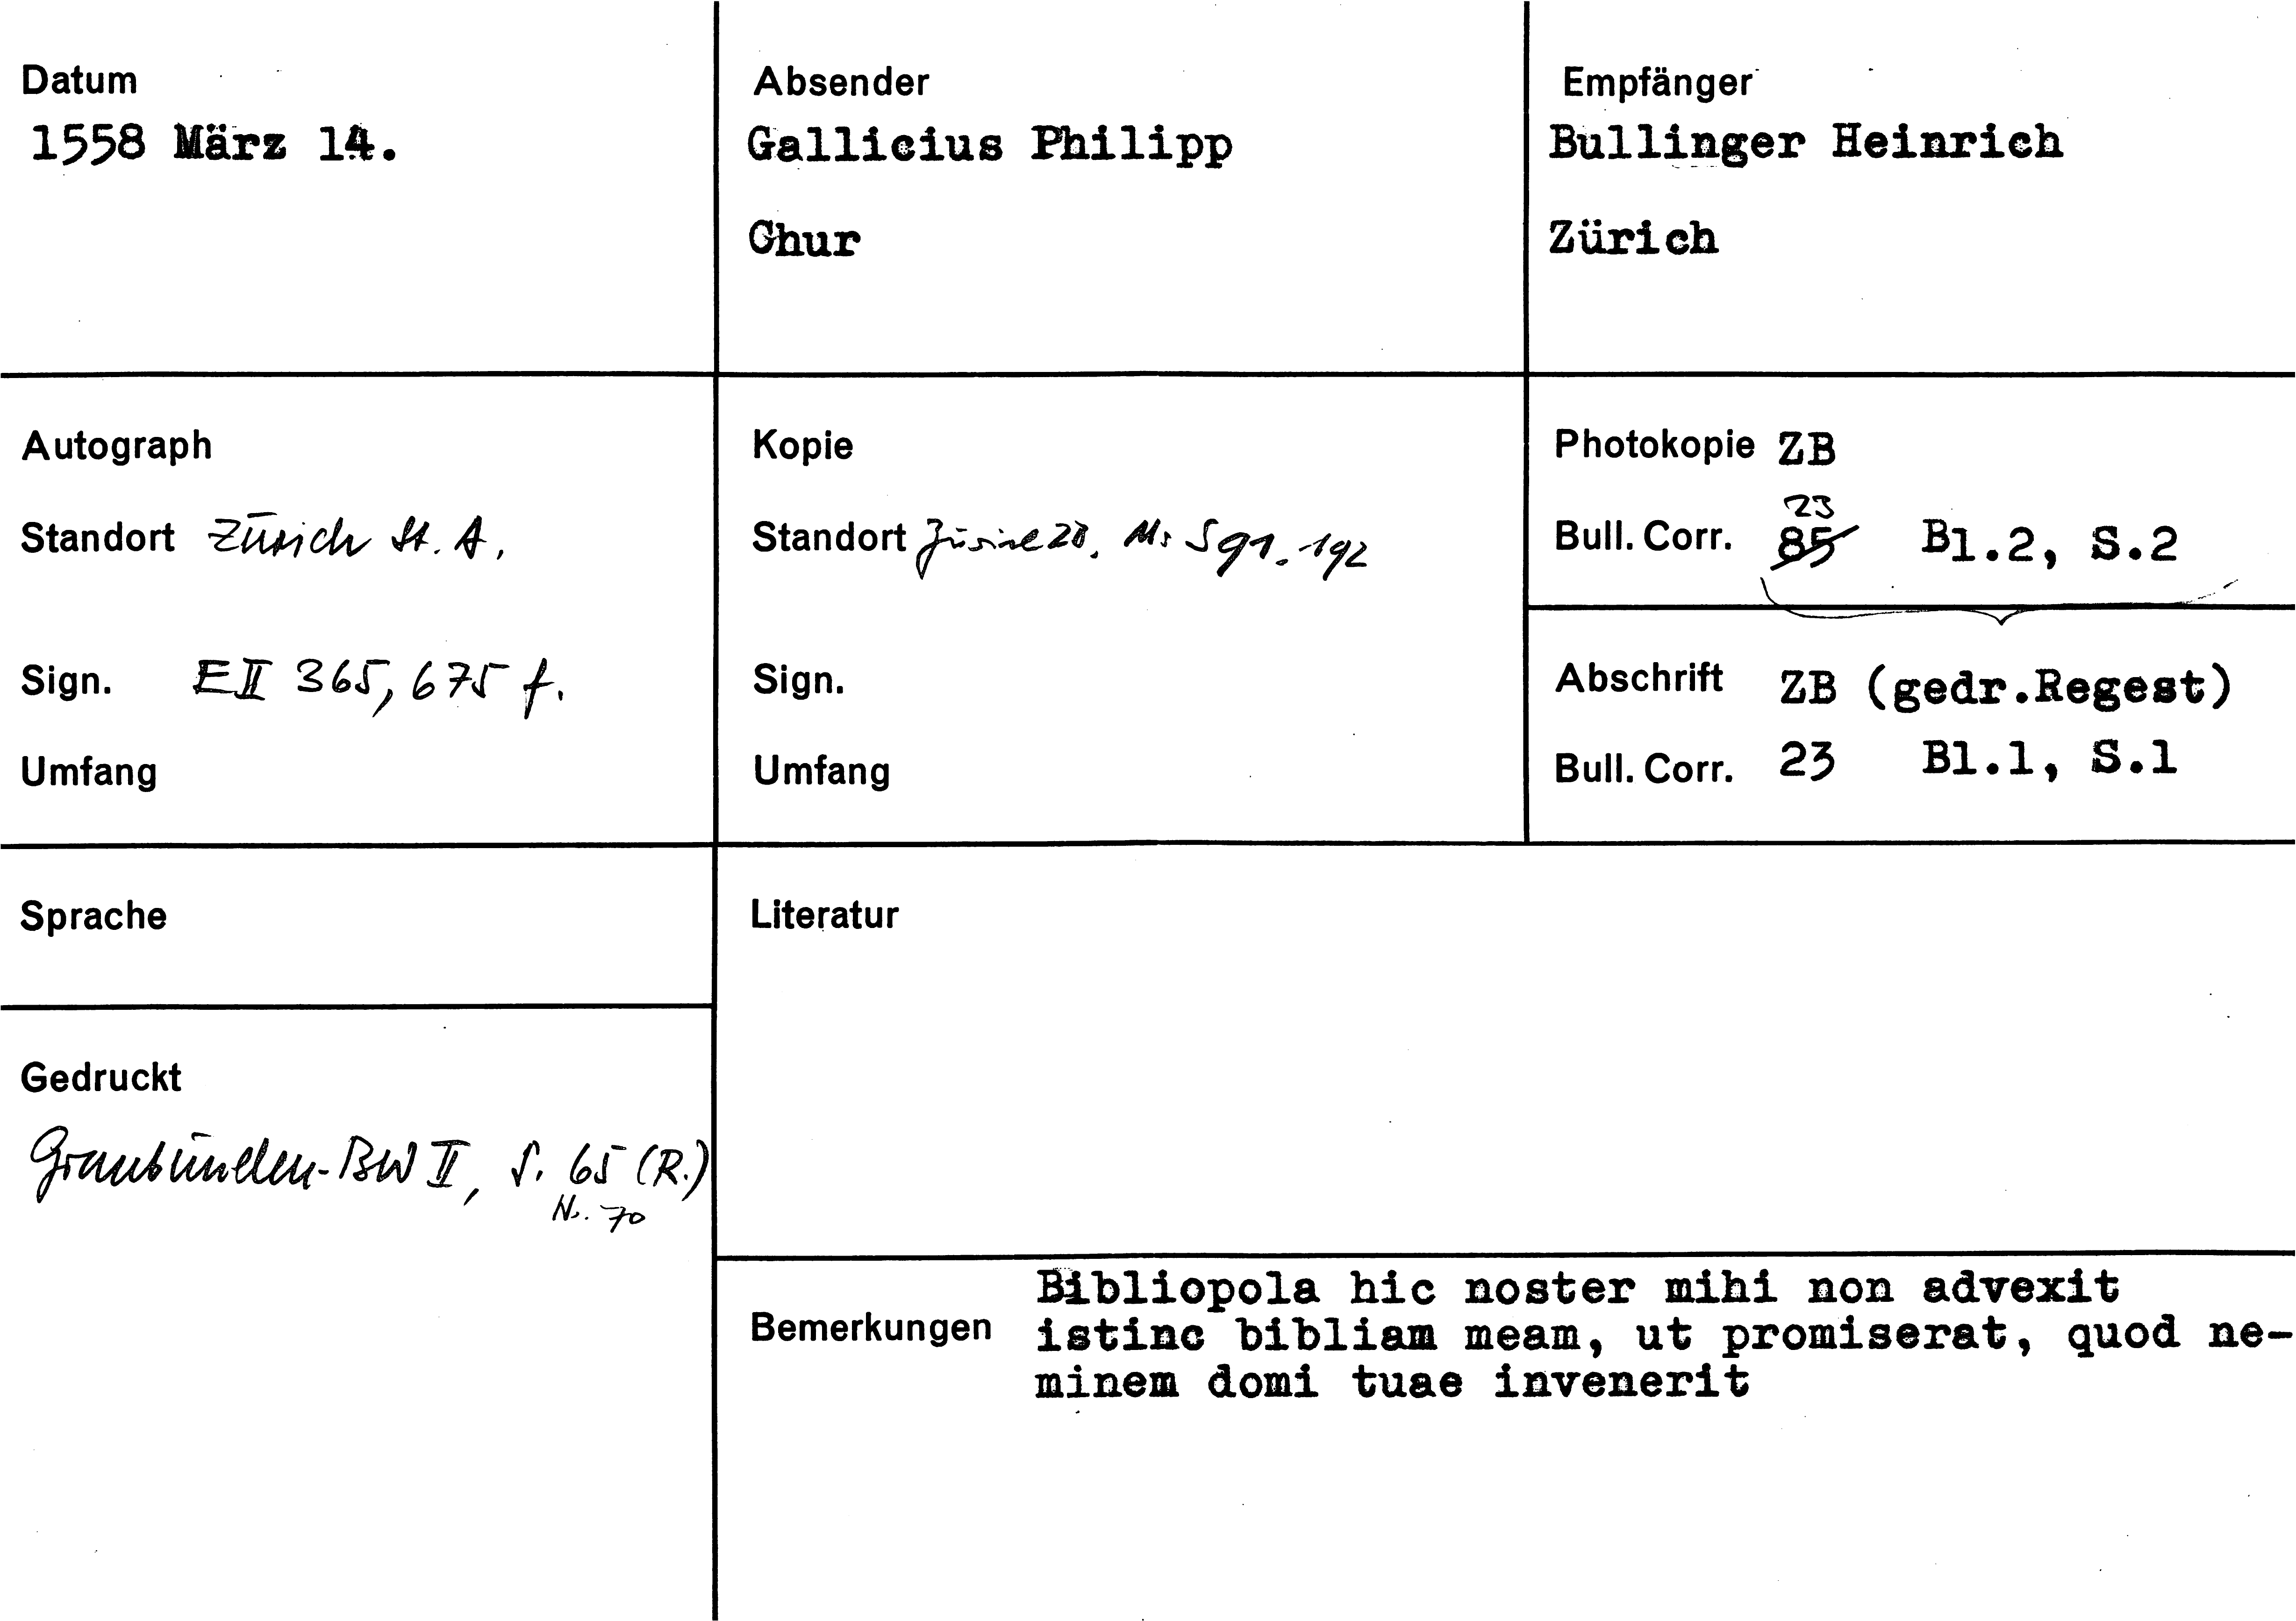 Datum
1558 März 14.
Absender
Gallicius Philipp
Chur
Empfänger
Bullinger Heinrich
Zürich
Autograph
Standort Zürich St. A.
Sign. E II 365, 675 f.
Umfang
Kopie
Standort Zürich ZB, Ms S 91, 192
Sign.
Umfang
Photokopie ZB
23
Bull. Corr. 85 Bl.2, S.2
Abschrift ZB (gedr.Regest)
Bull. Corr. 23 Bl.1, S.1
Sprache
Gedruckt
Graubünden-BW II, S. 65 (R.)
Nr. 70
Literatur
Bemerkungen
Bibliopola hic noster mihi non advexit
istinc bibliam meam, ut promiserat, quod ne-
minem domi tuae invenerit